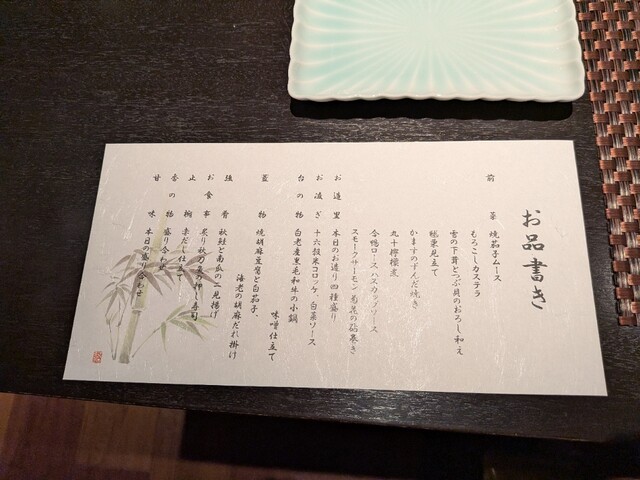 お品書き
前菜 焼茄子ムース
もろこしカステラ
雪の下茸とつぶ貝のおろし和え
毬栗見立て
かますのずんだ焼き
丸十檸檬煮
合鴨ロースハスカップソース
スモークサーモン 菊花の砧巻き
お造里 本日のお造り四種盛り
お凌ぎ 十六穀米コロッケ、白菜ソース
台の物 白老産黒毛和牛の小鍋
味噌仕立て
蓋物 焼胡麻豆腐と白茄子、
海老の胡麻だれ掛け
強肴 秋鮭と南瓜の二見揚げ
お食事 炙り秋刀魚の押し寿司
止椀 赤だし仕立て
香の物 盛り合わせ
甘味 本日の盛り合わせ